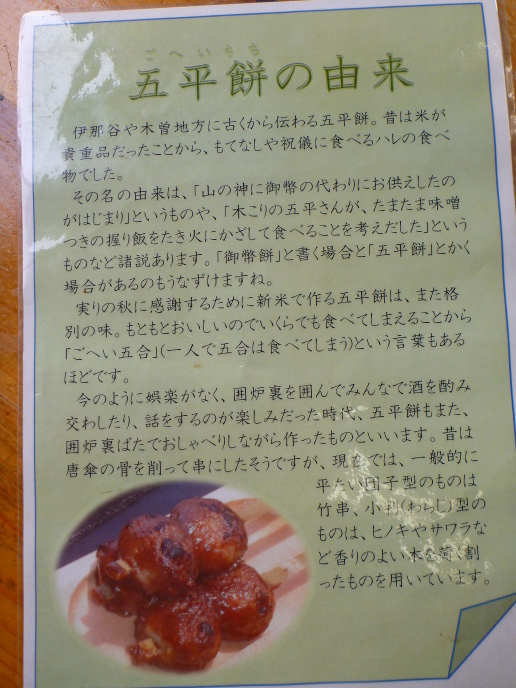 ごへいもち
五平餅の由来
伊那谷や木曽地方に古くから伝わる五平餅。昔は米が
貴重品だったことから、もてなしや祝儀に食べるハレの食べ
物でした。
その名の由来は、「山の神に御幣の代わりにお供えしたの
がはじまり」というものや、「木こりの五平さんが、たまたま味噌
つきの握り飯をたき火にかざして食べることを考えだした」という
ものなど諸説あります。「御幣餅」と書く場合と「五平餅」とかく
場合があるのもうなずけますね。
実りの秋に感謝するために新米で作る五平餅は、また格
別の味。もともとおいしいのでいくらでも食べてしまえることから
「ごへい五合」(一人で五合は食べてしまう)という言葉もある
ほどです。
今のように娯楽がなく、囲炉裏を囲んでみんなで酒を酌み
交わしたり、話をするのが楽しみだった時代、五平餅もまた、
囲炉裏ばたでおしゃべりしながら作ったものといいます。昔は
唐傘の骨を削って串にしたそうですが、現在では、一般的に
平たい団子型のものは
竹串、小判(わらじ)型の
ものは、ヒノキやサワラな
ど香りのよい木を薄く割
ったものを用いています。